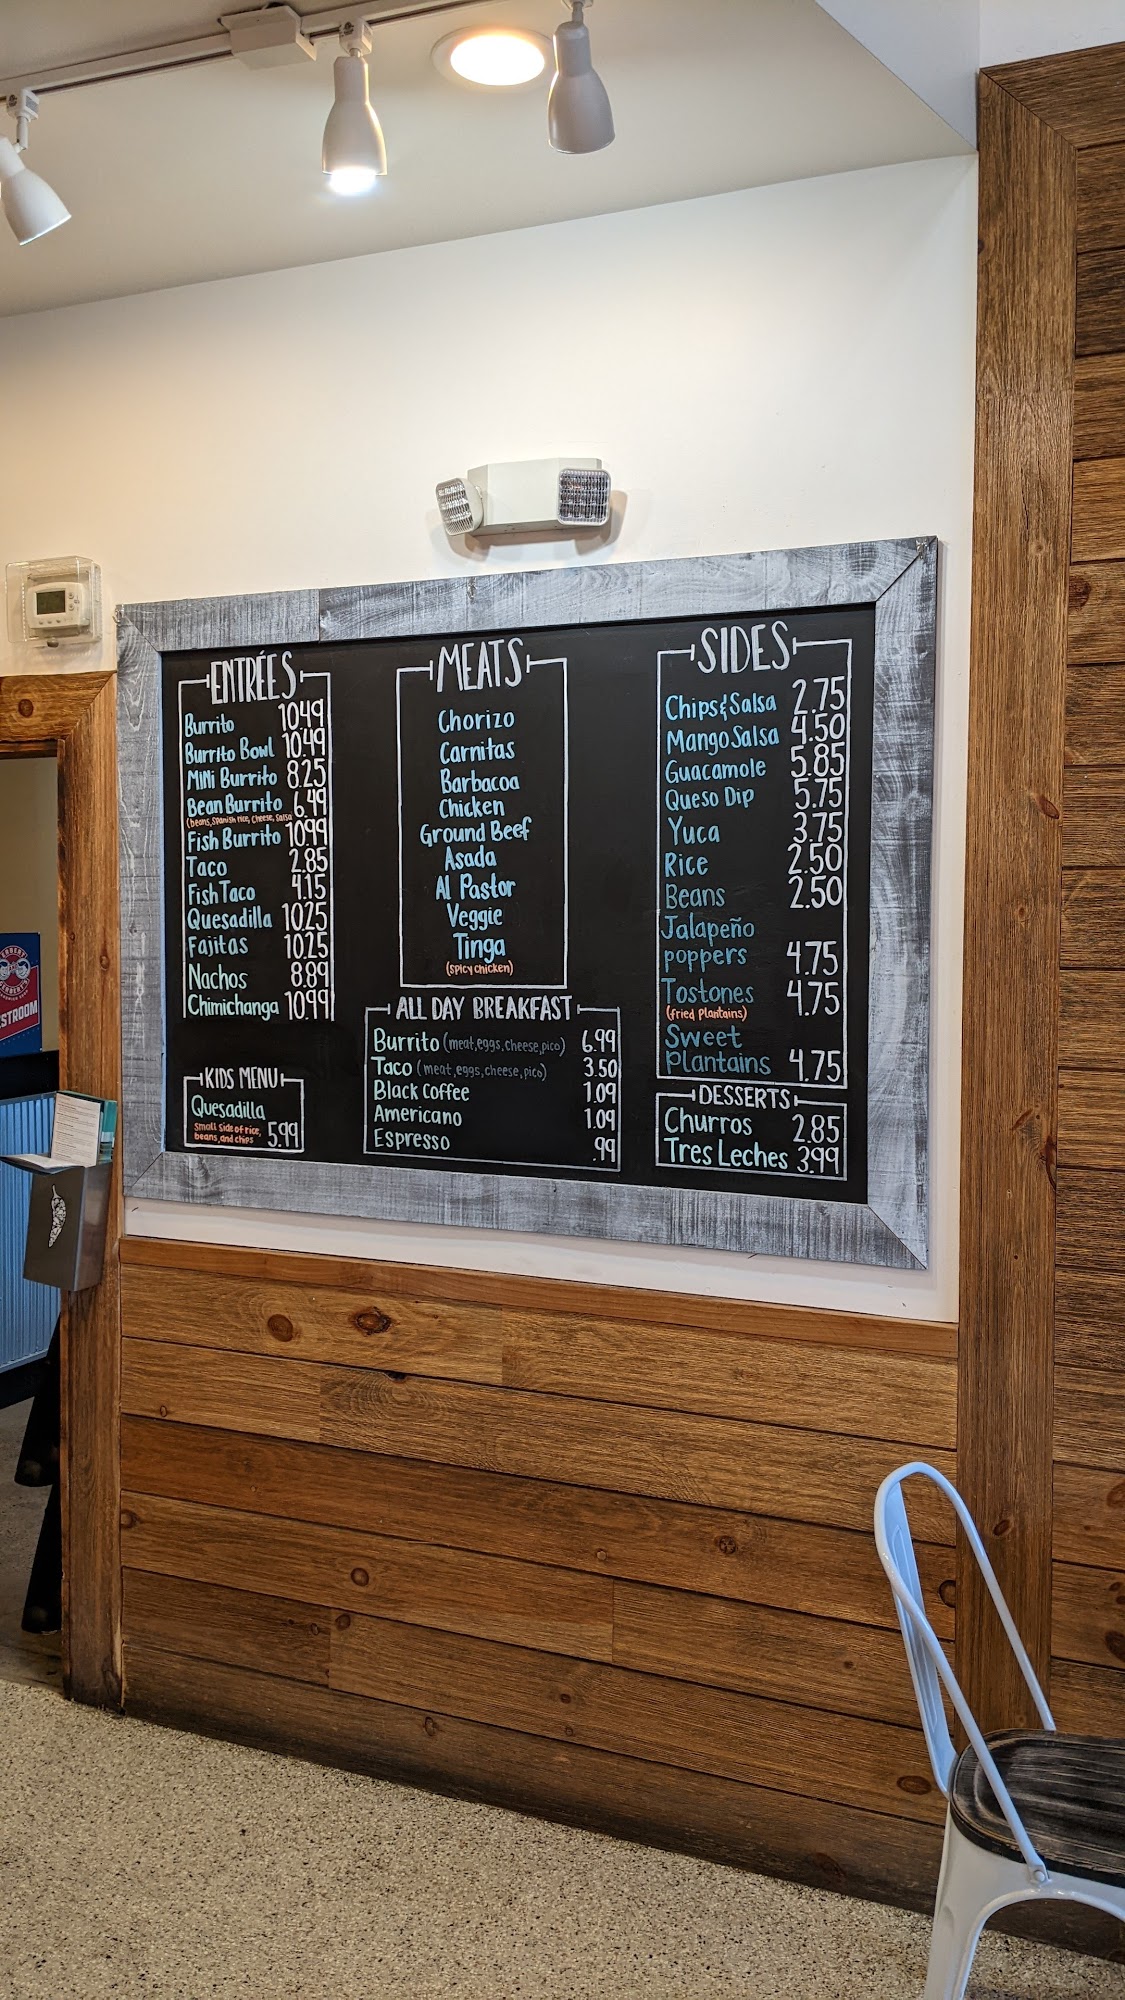 ENTRÉES
Burrito 10.49
Burrito Bowl 10.49
MINi Burrito 8.25
Bean Burrito 6.49
(beans, Spanish rice, Cheese, Salsa
Fish Burrito 10.99
Taco 2.85
Fish Taco 4.15
Quesadilla 10.25
Fajitas 10.25
Nachos 8.89
Chimichanga 10.99
KIDS MENU
Quesadilla
Small side of rice,
beans, and chips 5.99
MEATS
Chorizo
Carnitas
Barbacoa
Chicken
Ground Beef
Asada
Al Pastor
Veggie
Tinga
(Spicy chicken)
ALL DAY BREAKFAST
Burrito (meat, eggs, cheese, pico) 6.99
Taco (meat, eggs, cheese, pico) 3.50
Black Coffee 1.09
Americano 1.09
Espresso .99
SIDES
Chips & Salsa 2.75
Mango Salsa 4.50
Guacamole 5.85
Queso Dip 5.75
Yuca 3.75
Rice 2.50
Beans 2.50
Jalapeño
poppers 4.75
Tostones 4.75
(fried Plantains)
Sweet
Plantains 4.75
DESSERTS
Churros 2.85
Tres Leches 3.99
STROOM